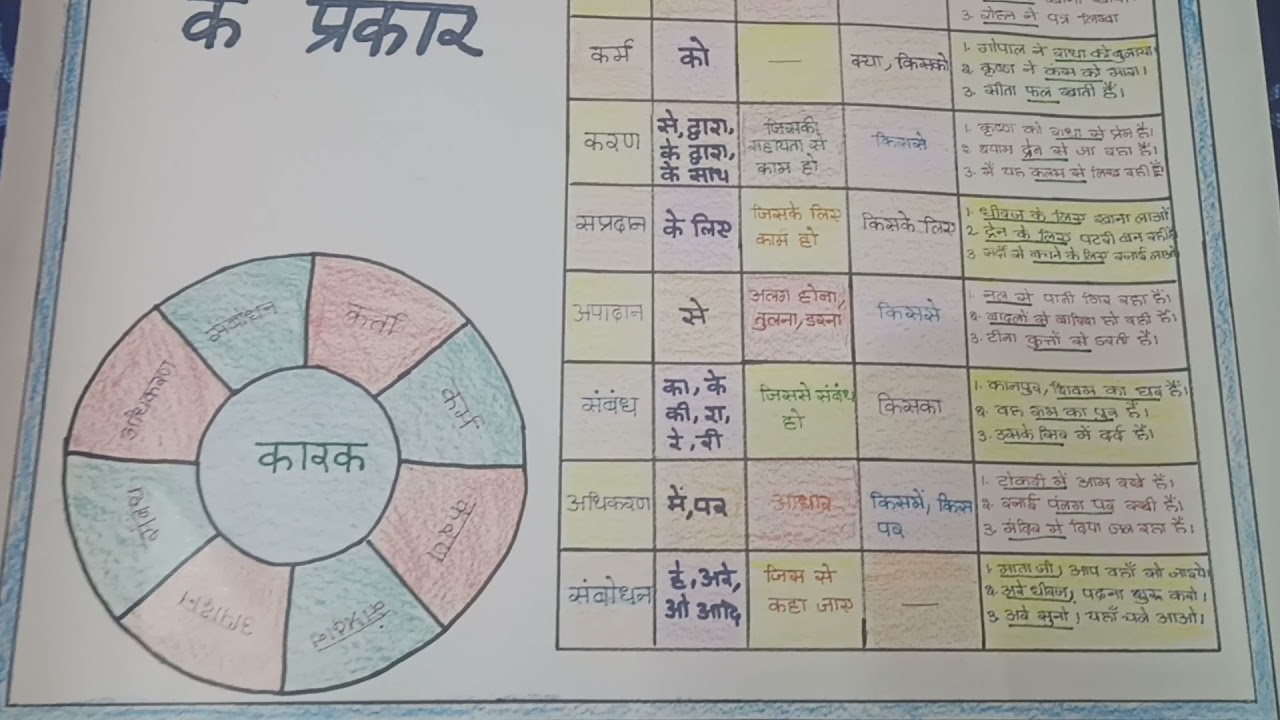 के प्रकार
3. रोहन ने पत्र लिखा
कर्म
को
—
क्या, किसको
1. गोपाल ने राधा को बुलाया।
2. कृष्ण ने कंस को मारा।
3. सीता फल खाती है।
करण
से, द्वारा,
के द्वारा,
के साथ
जिसकी
सहायता से
काम हो
किससे
1. कृष्ण को राधा से प्रेम है।
2. श्याम ट्रेन से जा रहा है।
3. मैं यह कलम से लिख रही हूँ।
सप्रदान
के लिए
जिसके लिए
काम हो
किसके लिए
1. धीरज के लिए खाना लाओ
2. ट्रेन के लिए पटरी बन रही है
3. सर्दी से बचाने के लिए रजाई लाओ
अपादान
से
अलग होना,
तुलना, डरना
किससे
1. नल से पानी गिर रहा है।
2. बादलों से बारिश हो रही है।
3. टीना कुत्तों से डरती है।
संबंध
का, के
की, रा,
रे, री
जिससे संबंध
हो
किसका
1. कानपुर, शिवम का घर है।
2. वह राम का पुत्र है।
3. उसके सिर में दर्द है।
अधिकरण
में, पर
आधार
किसमें, किस
पर
1. टोकरी में आम रखे है।
2. रजाई पंलग पर रखी है।
3. मंदिर में दिया जल रहा है।
संबोधन
हे, अरे,
ओ आदि
जिस से
कहा जाए
—
1. माता जी, आप वहाँ सो जाइये।
2. अरे धीरज, पढ़ना शुरू करो।
3. अबे सुनो, यहाँ चले आओ।
कारक
कर्ता
कर्म
करण
संप्रदान
अपादान
संबंध
अधिकरण
संबोधन